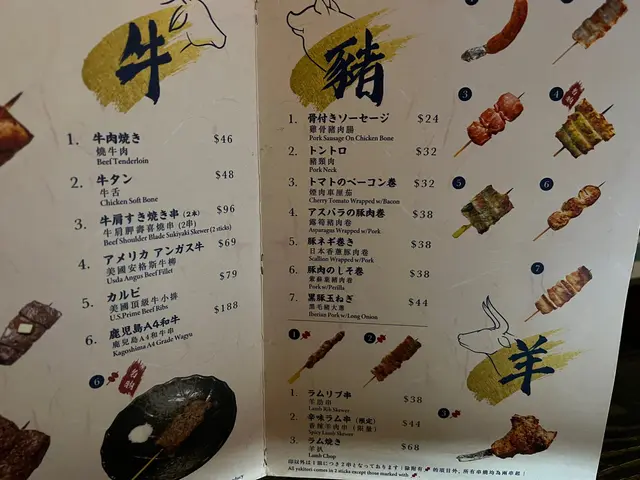 牛
1. 牛肉焼き $46
燒牛肉
Beef Tenderloin
2. 牛タン $48
牛舌
Chicken Soft Bone
3. 牛肩すき焼き串 (2本) $96
牛肩胛壽喜燒串 (2串)
Beef Shoulder Blade Sukiyaki Skewer (2 sticks)
4. アメリカ アンガス牛 $69
美國安格斯牛柳
Usda Angus Beef Fillet
5. カルビ $79
美國頂級牛小排
U.S.Prime Beef Ribs
6. 鹿児島A4和牛 $188
鹿兒島A4和牛串
Kagoshima A4 Grade Wagyu
6
名物
豬
1. 骨付きソーセージ $24
雞骨豬肉腸
Pork Sausage On Chicken Bone
2. トントロ $32
豬頸肉
Pork Neck
3. トマトのベーコン巻 $32
煙肉車厘茄
Cherry Tomato Wrapped w/Bacon
4. アスパラの豚肉巻 $38
露荀豬肉卷
Asparagus Wrapped w/Pork
5. 豚ネギ巻き $38
日本香蔥豚肉卷
Scallion Wrapped w/Pork
6. 豚肉のしそ巻 $38
紫蘇葉豬肉卷
Pork w/Perilla
7. 黒豚玉ねぎ $44
黑毛豬大蔥
Iberian Pork w/Long Onion
3
4
5
6
7
羊
1
2
1. ラムリブ串 $38
羊肋串
Lamb Rib Skewer
2. 辛味ラム串 (限定) $44
香辣羊肉串 (限量)
Spicy Lamb Skewer
3. ラム焼き $68
羊扒
Lamb Chop
3
All yakitori comes in 2 sticks except those marked with